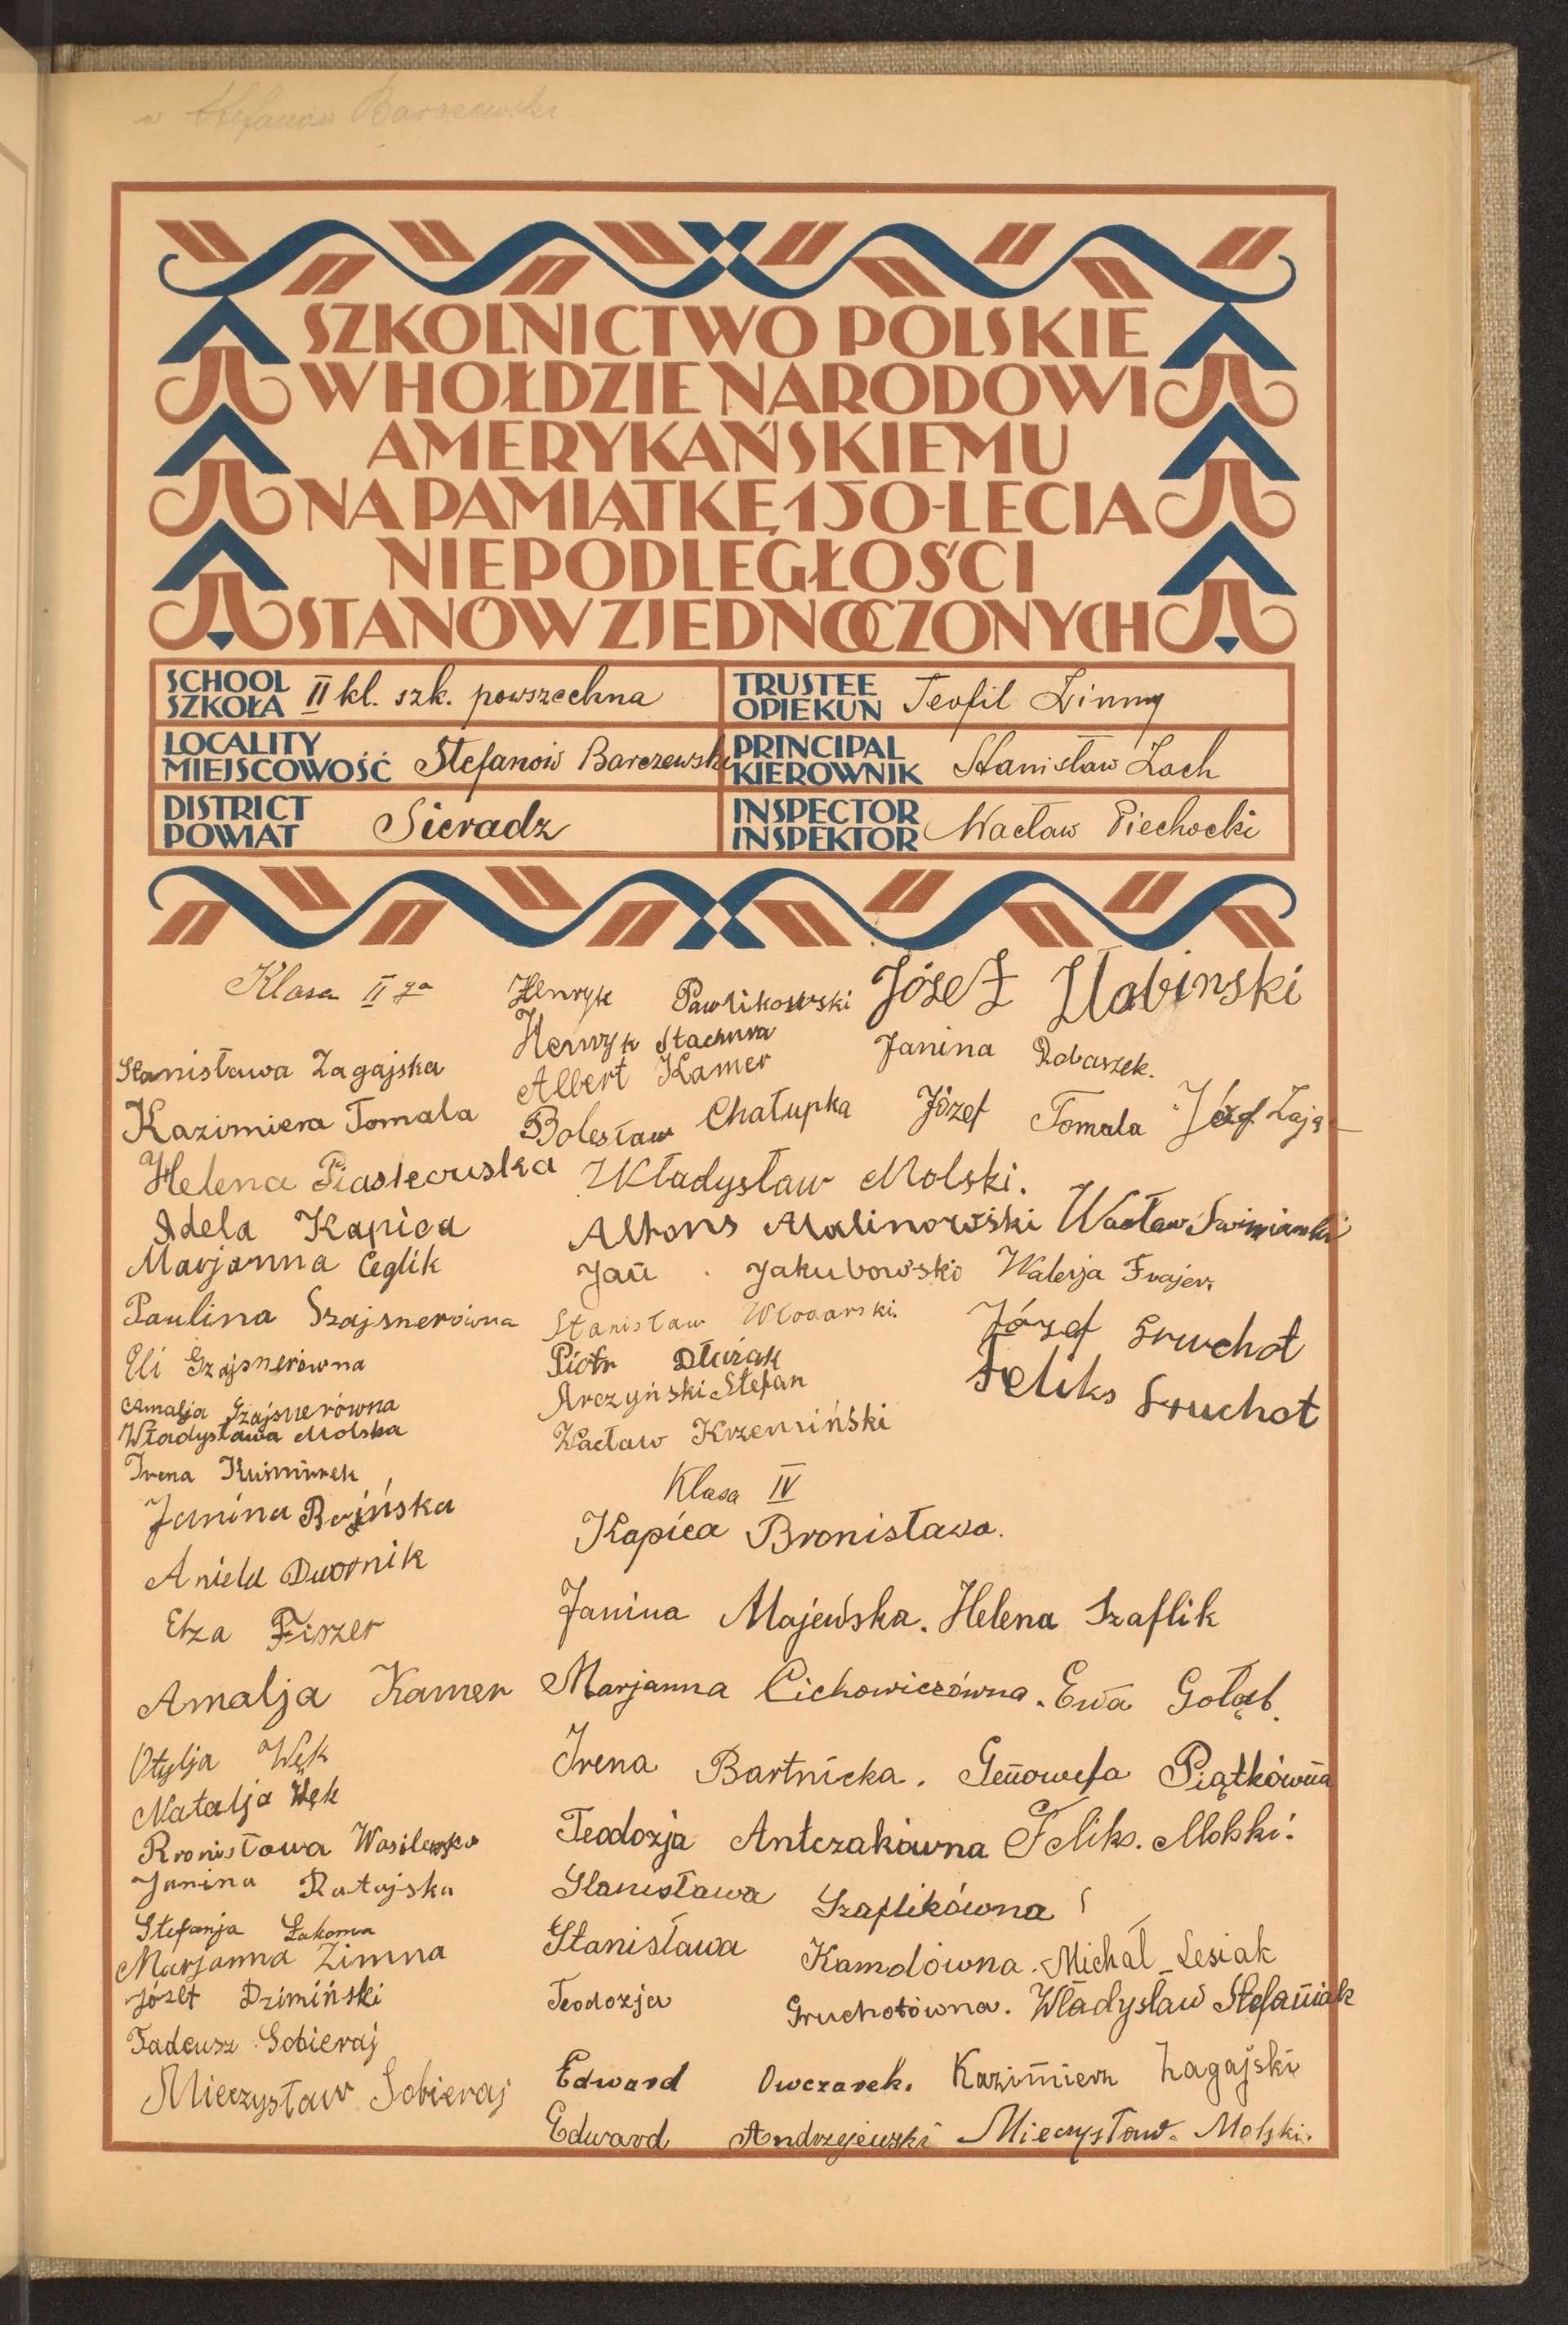 w Stefanów Barczewski
SZKOLNICTWO POLSKIE
W HOŁDZIE NARODOWI
AMERYKAŃSKIEMU
NA PAMIĄTKĘ 150-LECIA
NIEPODLEGŁOŚCI
STANÓW ZJEDNOCZONYCH
SCHOOL
SZKOŁA II kl. szk. powszechna
TRUSTEE
OPIEKUN Teofil Zimny
LOCALITY
MIEJSCOWOŚĆ Stefanów Barczewski
PRINCIPAL
KIEROWNIK Stanisław Zach
DISTRICT
POWIAT Sieradz
INSPECTOR
INSPEKTOR Wacław Piechocki
Klasa II ga
Stanisława Zagajska
Kazimiera Tomala
Helena Piasecwska
Adela Kapica
Marjanna Ceglik
Paulina Szajsnerówna
Eli Szajsnerówna
Amalja Szajsnerówna
Władysława Molska
Irena Kuśmirek
Janina Bojńska
Aniela Dwornik
Elza Fiszer
Amalja Kamer
Otylja Węk
Natalja Węk
Bronisława Wasilewska
Janina Ratajska
Stefanja Łakoma
Marjanna Zimna
Józef Dzimiński
Tadeusz Sobieraj
Mieczysław Sobieraj
Henryk Pawlikowski
Henryk Stachura
Albert Kamer
Bolesław Chałupka
Władysław Molski.
Alfons Malinowski
Jan Jakubowski
Stanisław Włodarski.
Piotr Dłużak
Arczyński Stefan
Wacław Krzemiński
Józef
Janina Robaszek.
Józef Tomala
Józef Zają
Wacław
Walerja Frajer.
Józef Gruchot
Feliks Gruchot
Klasa IV
Kapica Bronisława.
Janina Majewska. Helena Szaflik
Marjanna Cichowiczówna. Ewa Gołąb.
Irena Bartnicka. Genowefa Piątkówna
Teodozja Antczakówna Feliks. Molski.
Stanisława Szaflikówna
Stanisława Kamdówna. Michał Lesiak
Teodozja Gruchotówna. Władysław Stefaniak
Edward Owczarek. Kazimierz Zagajski
Edward Andrzejewski Mieczysław. Molski.